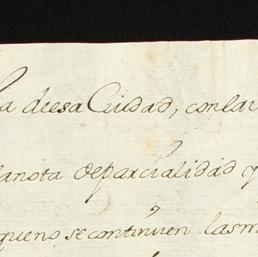 la deesa Ciudad, con la
la nota deparcialidad q
queno se continuen las m